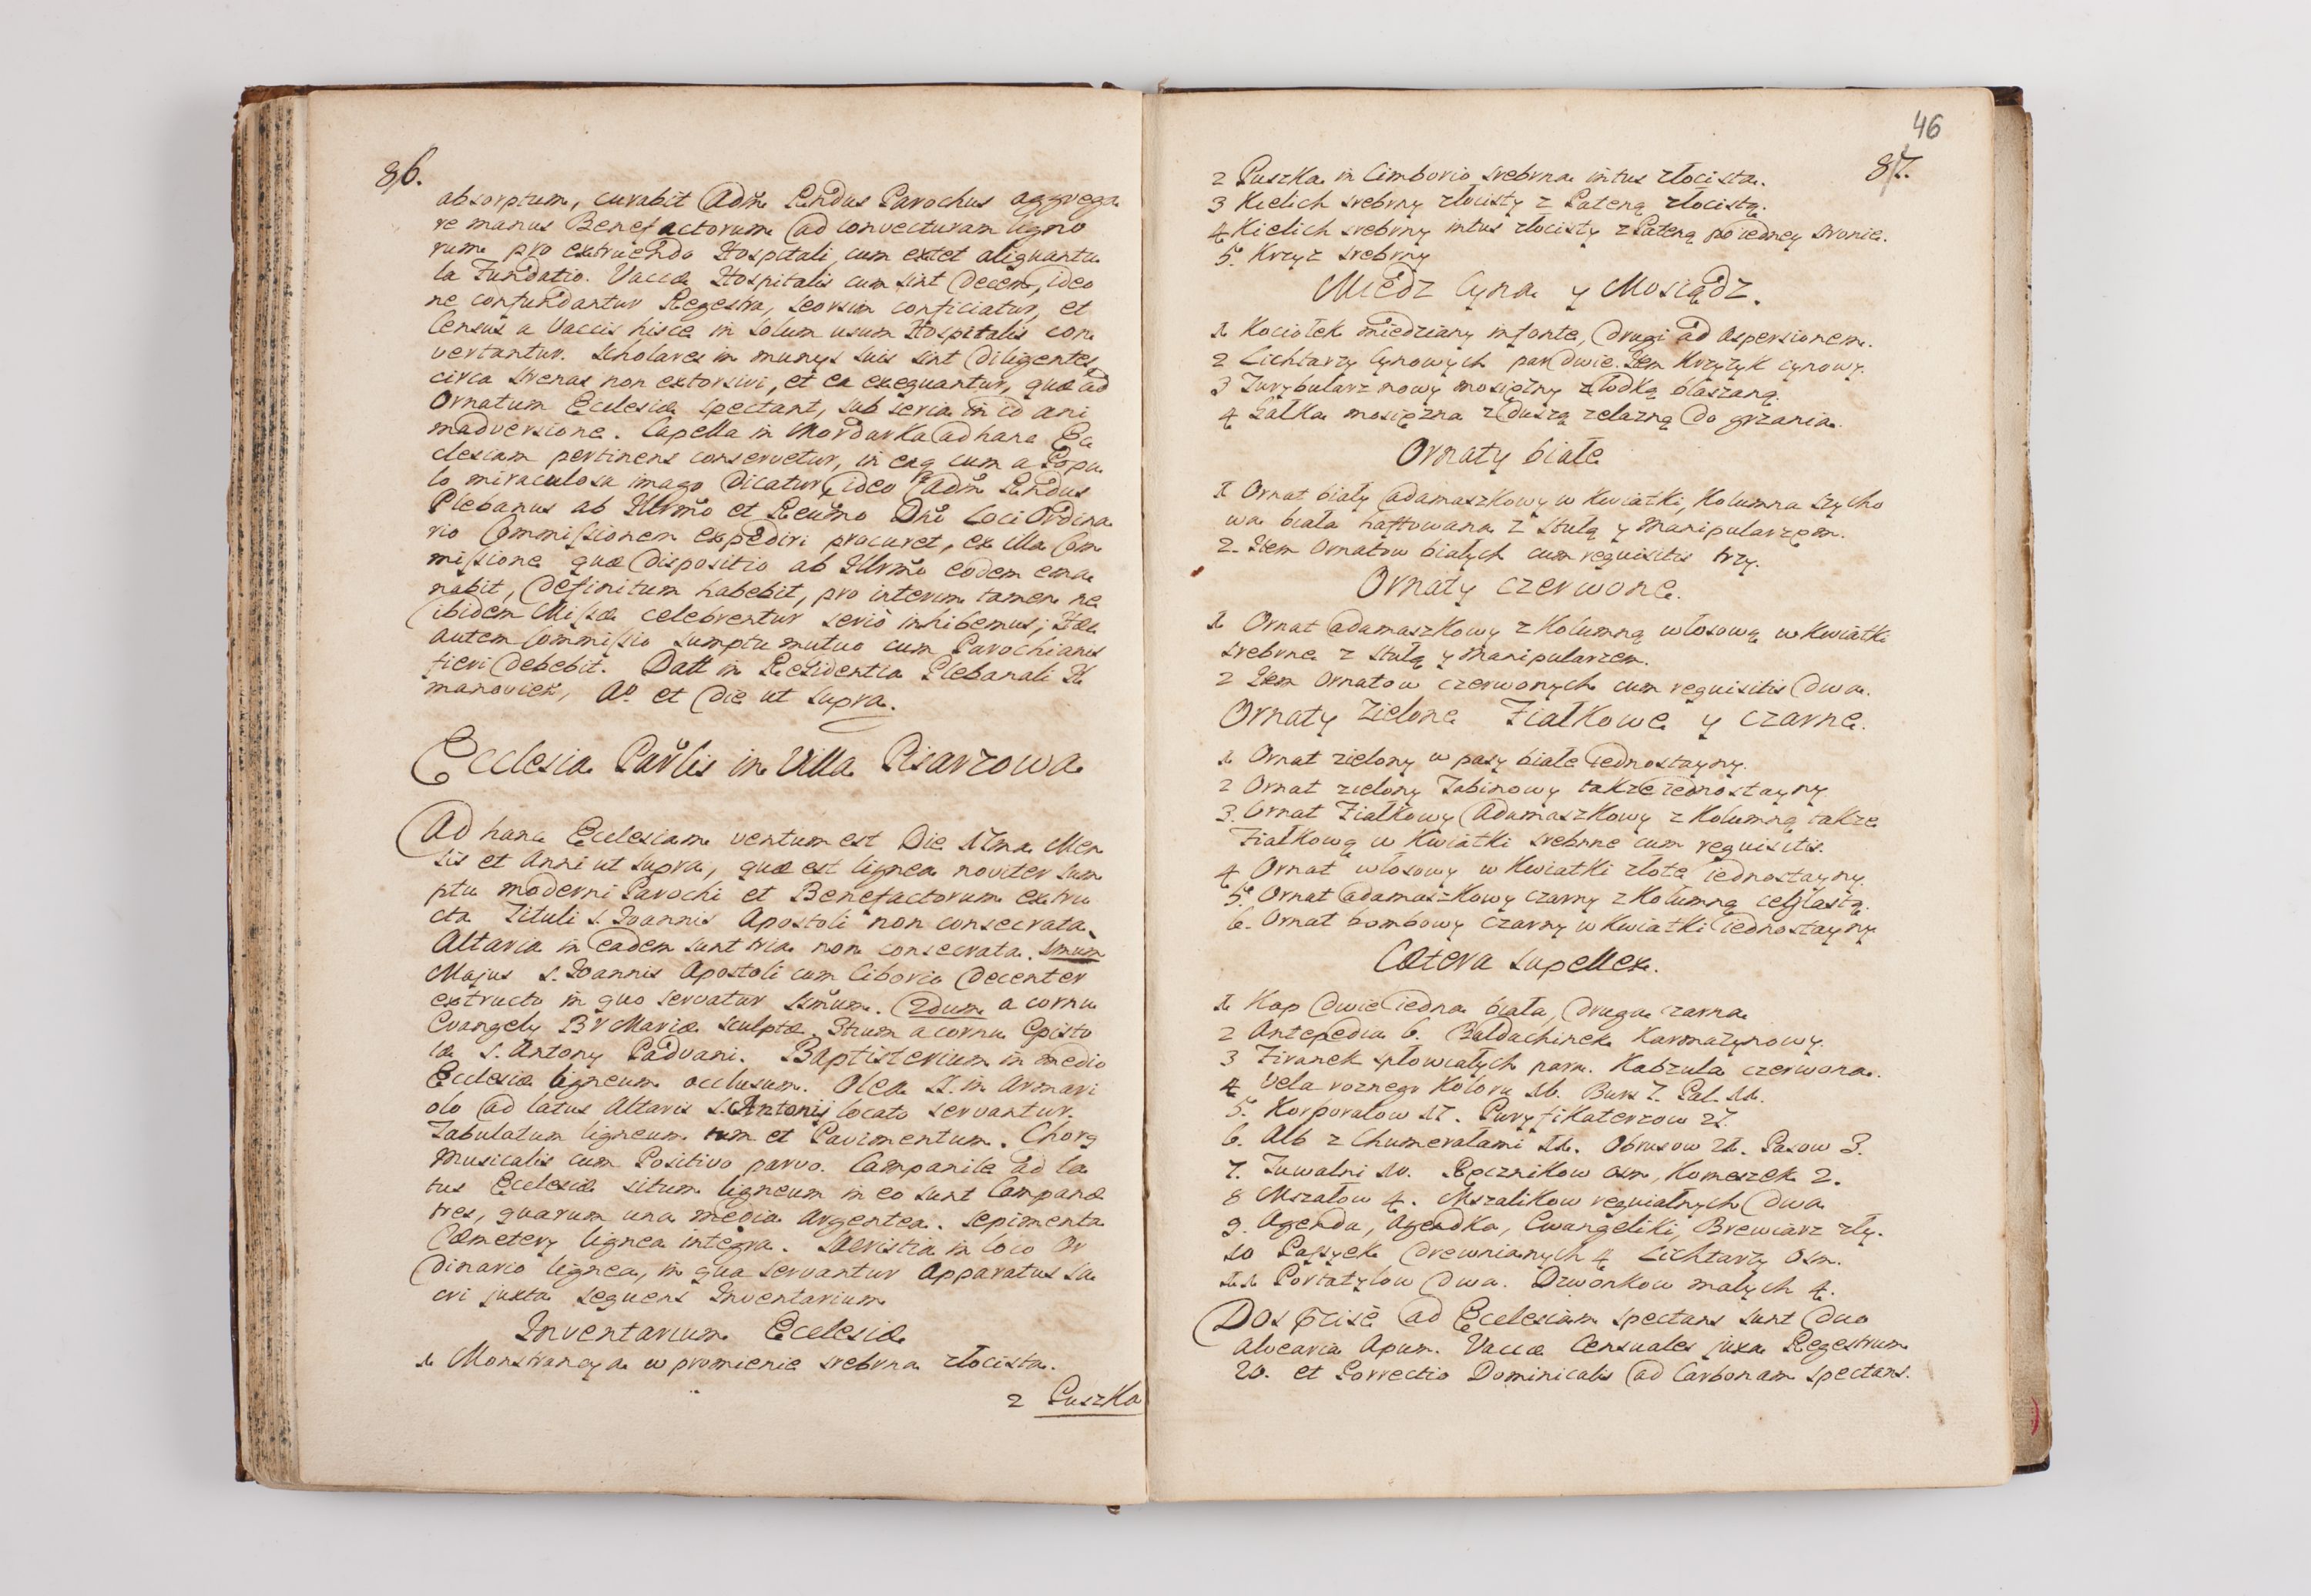 86.
absorptum, curabit Adm Rndus Parochus aggrega
re manus Benefactorum ad convecturam ligno
rum pro extruendo Hospitali, cum extet aliquantu
la Fundatio. Vaccæ Hospitalis cum sint Decem, ideo
ne confundantur Regestra, seorsim conficiatur, et
Census a Vaccis hisce in solum usum Hospitalis con
vertantur. Scholares in munys suis sint diligentes
circa strenas non extorsivi, et ea exequantur, quæ ad
Ornatum Ecclesiæ spectant, sub seria in id ani
madversione. Capella in Mordarka ad hanc Ec
clesiam pertinens conservetur, in eaq cum a Popu
lo miraculosa imago dicatur, ideo Adm Rndus
Plebanus ab Illrmo et Reumo Dno Loci Ordina
rio Commissionem expediri procuret, ex illa Com
missione quæ dispositio ab Illrmo eodem ema
nabit, definitum habebit, pro interim tamen ne
ibidem Missæ celebrentur serio inhibemus; Hæc
autem Commissio sumptu mutuo cum Parochianis
fieri debebit. Datt in Residentia Plebanali Li
manovien, Ao. et die ut supra.
Ecclesia Parlis in Villa Pisarzowa
Ad hanc Ecclesiam ventum est Die 17ma Men
sis et Anni ut supra, quæ est lignea noviter sum
ptu moderni Parochi et Benefactorum extru
cta Tituli S. Joannis Apostoli non consecrata.
Altaria in eadem sunt tria non consecrata. 1mum
Majus S. Joannis Apostoli cum Ciborio decenter
extructo in quo servatur Ssmum. 2dum a cornu
Evangely BV Mariæ sculptæ. 3tium a cornu Episto
læ S. Antony Padvani. Baptisterium in medio
Ecclesiæ ligneum occlusum. Olea S. in Armari
olo ad latus Altaris S. Antonij locato servantur.
Tabulatum ligneum et Pavimentum. Chorg
Musicalis cum Positivo parvo. Campanile ad la
tus Ecclesiæ situm ligneum in eo sunt Campanæ
tres, quarum una media argentea. Sepimenta
Cæmetery lignea integra. Sacristia in loco Or
dinario lignea, in qua servantur Apparatus sa
cri juxta sequens Inventarium
Inventarium Ecclesiæ
1 Monstrancya w promienie srebrna złocista.
2 Puszka
46
87.
2 Puszka in Cimborio srebrna intus złocista.
3 Kielich srebrny złocisty z Pateną złocistą.
4 Kielich srebrny intus złocisty z Pateną po iedney stronie.
5. Krzyz srebrny
Miedz Cyna y Mosiądz.
1 Kociołek miedziany in fonte, drugi ad aspersionem.
2 Lichtarzy cynowych par dwie. Item Krzyżyk cynowy.
3 Turybularz nowy mosiężny z łodką blaszaną.
4 Gałka mosiężna z duszą zelazną do grzania.
Ornaty białe
1 Ornat biały adamaszkowy w kwiatki, Kolumna szycho
wa biała haftowana z stułą y manipularzem.
2. Item Ornatow białych cum requisitis trzy.
Ornaty czerwone.
1 Ornat adamaszkowy z Kolumną włosową w kwiatki
srebrne z stułą y manipularzem.
2 Item Ornatow czerwonych cum requisitis dwa.
Ornaty Zielone Fiałkowe y czarne.
1 Ornat zielony w pasy białe iednostayny.
2 Ornat zielony Tabinowy także iednostayny.
3. Ornat Fiałkowy Adamaszkowy z Kolumną także
Fiałkową w kwiatki srebrne cum requisitis.
4 Ornat włosowy w kwiatki złote iednostayny.
5. Ornat adamaszkowy czarny z Kolumną ceglastą.
6. Ornat bombowy czarny w kwiatki iednostayny
Cætera supellex.
1 Kap dwie iedna biała, druga czarna
2 Antepedia 6. Baldachinek Karmazynowy.
3 Firanek spłowiałych para. Kabzula czerwona.
4 Vela roznego koloru 16. Burs 7. Pal. 11.
5. Korporałow 17. Puryfikaterzow 27.
6. Alb z Chumerałami 11. Obrusow 21. Pasow 3.
7. Tuwalni 10. Ręcznikow osm, Komeszek 2.
8 Mszałow 4. Mszalikow requialnych dwa
9. Agenda, Agendka, Ewangeliki, Brewiarz zły.
10 Passyek drewnianych 4 Lichtarzy Osm.
11 Portatylow dwa. Dzwonkow małych 4.
Dos ad Ecclesiam spectans sunt duo
alvearia Apum. Vaccæ Censuales juxa Regestrum
20. et Porrectio Dominicalis ad Carbonam spectans.